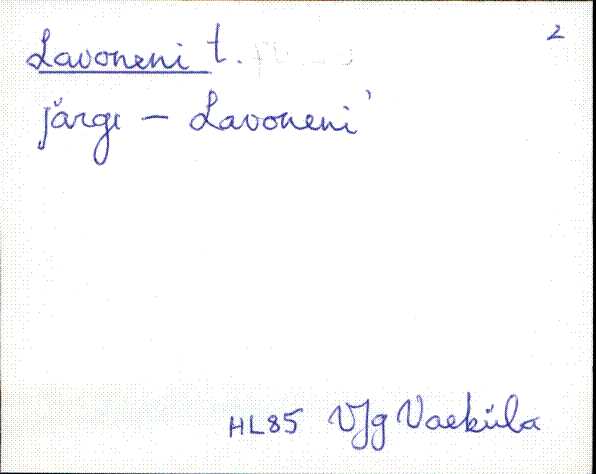 2
Lavoneni t.
järgi – Lavoneni'
HL85 VJg Vaeküla